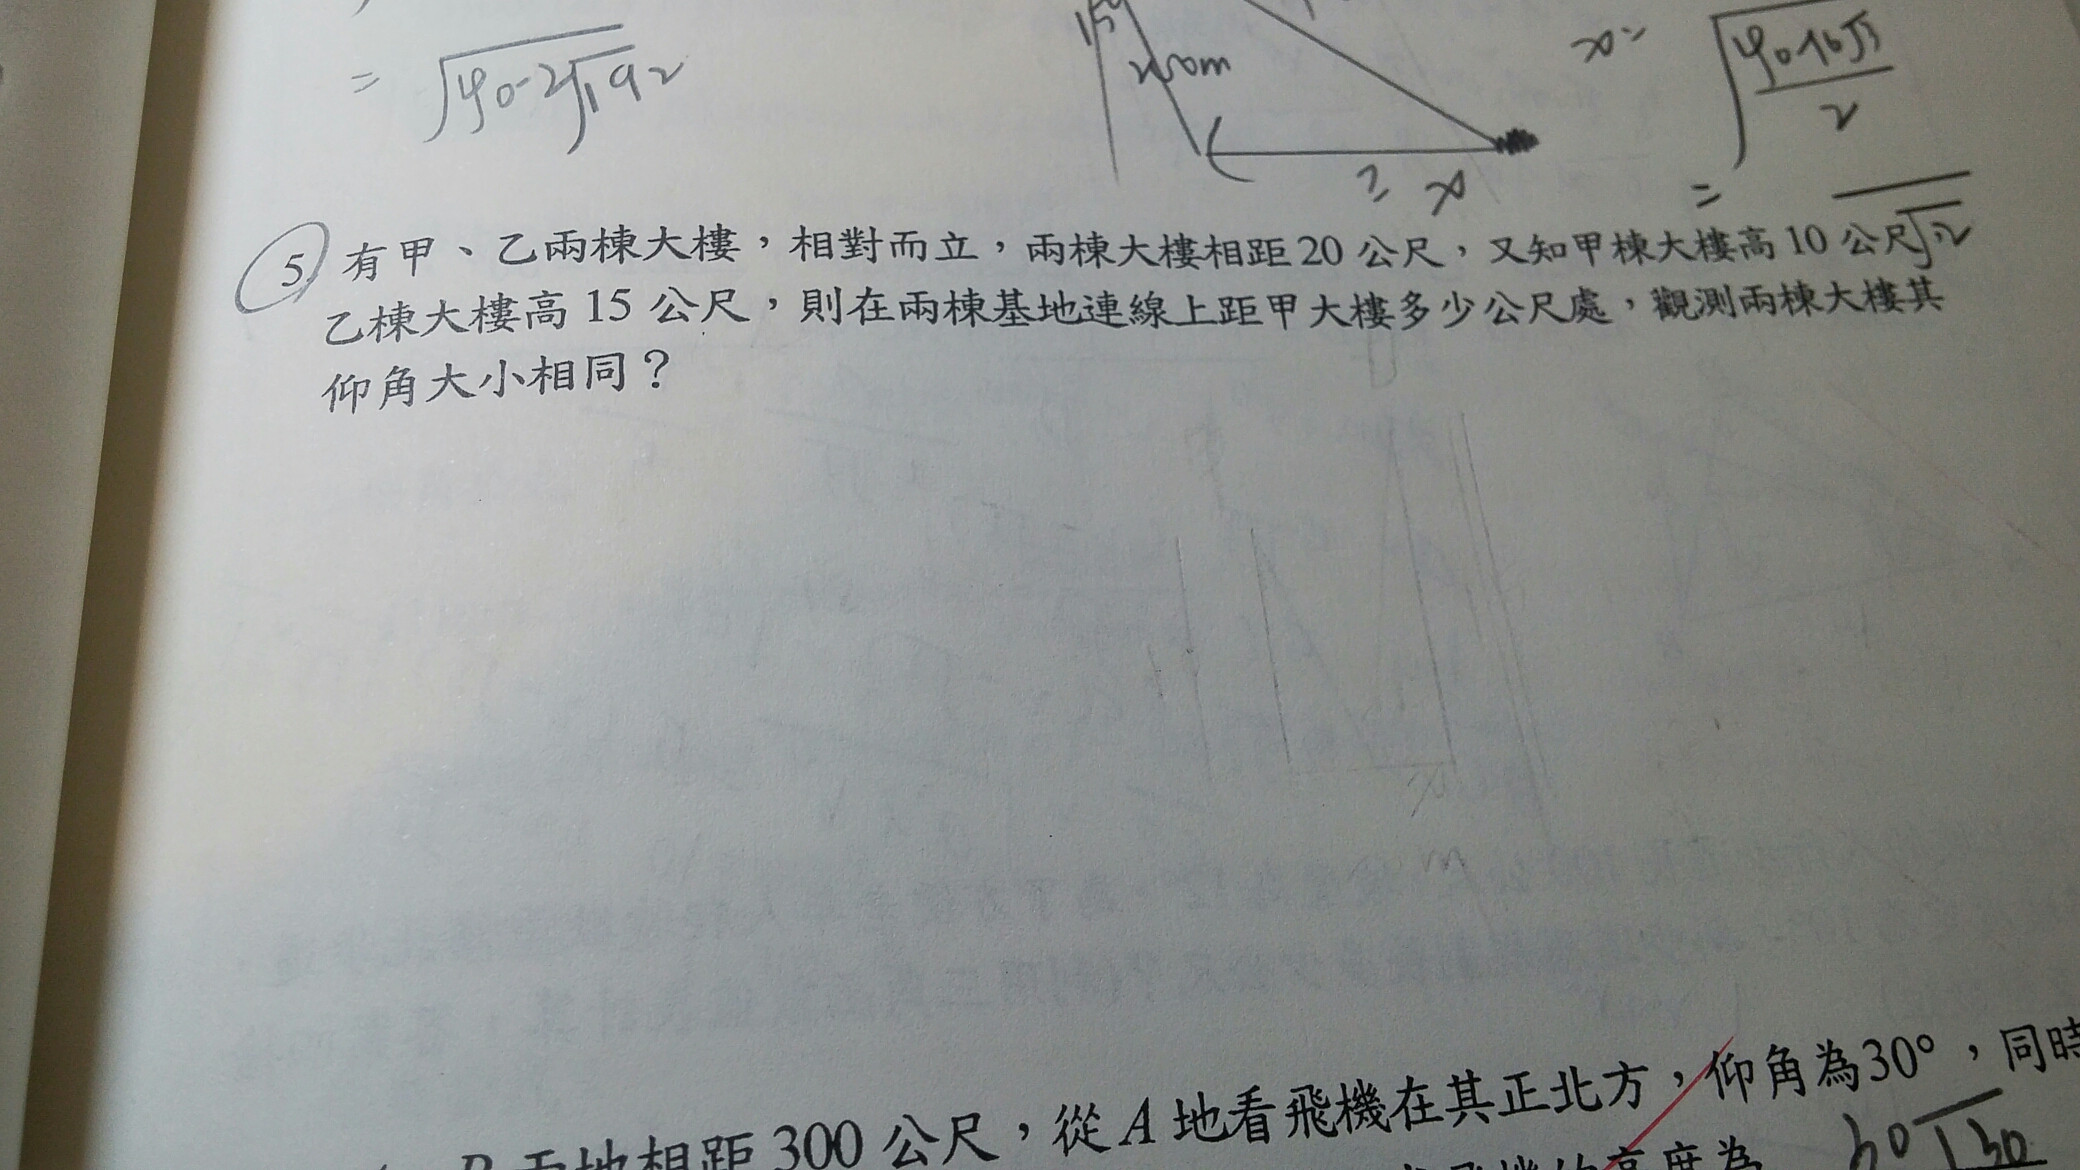 = √40-2√192
15°
20m
x=
√40-16√3/2
2 x
=
5 有甲、乙兩棟大樓，相對而立，兩棟大樓相距 20 公尺，又知甲棟大樓高 10 公尺
乙棟大樓高 15 公尺，則在兩棟基地連線上距甲大樓多少公尺處，觀測兩棟大樓其
仰角大小相同？
兩地相距 300 公尺，從 A 地看飛機在其正北方，仰角為30°，同時
高度為